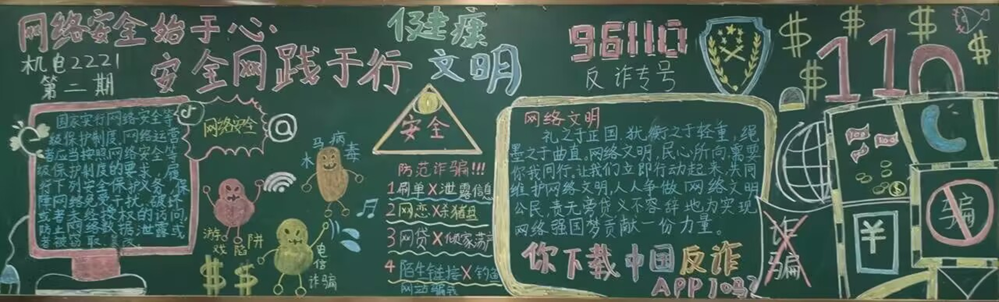 网络安全始于心
安全网践于行
机电2221
第二期
健康
文明
96110
反诈专号
110
国家实行网络安全等
级保护制度,网络运营
者应当按照网络安全等
级保护制度的要求,履
行下列安全保护义务,保
障网络免受干扰、
网络安全
@
木马病毒
游戏陷阱
电信诈骗
安全
防范诈骗!!!
1刷单X泄露信息
2网恋X杀猪盘
3网贷X倾家荡产
4陌生链接X钓鱼
网站骗
网络文明
礼之于正国,犹衡之于轻重,绳
墨之于曲直。网络文明,民心所向,需要
你我同行,让我们立即行动起来,共同
维护网络文明,人人争做“网络文明
公民,责无旁贷,义不容辞地,为实现
网络强国梦贡献一份力量。
你下载中国反诈
APP了吗?
诈骗
100
¥
骗